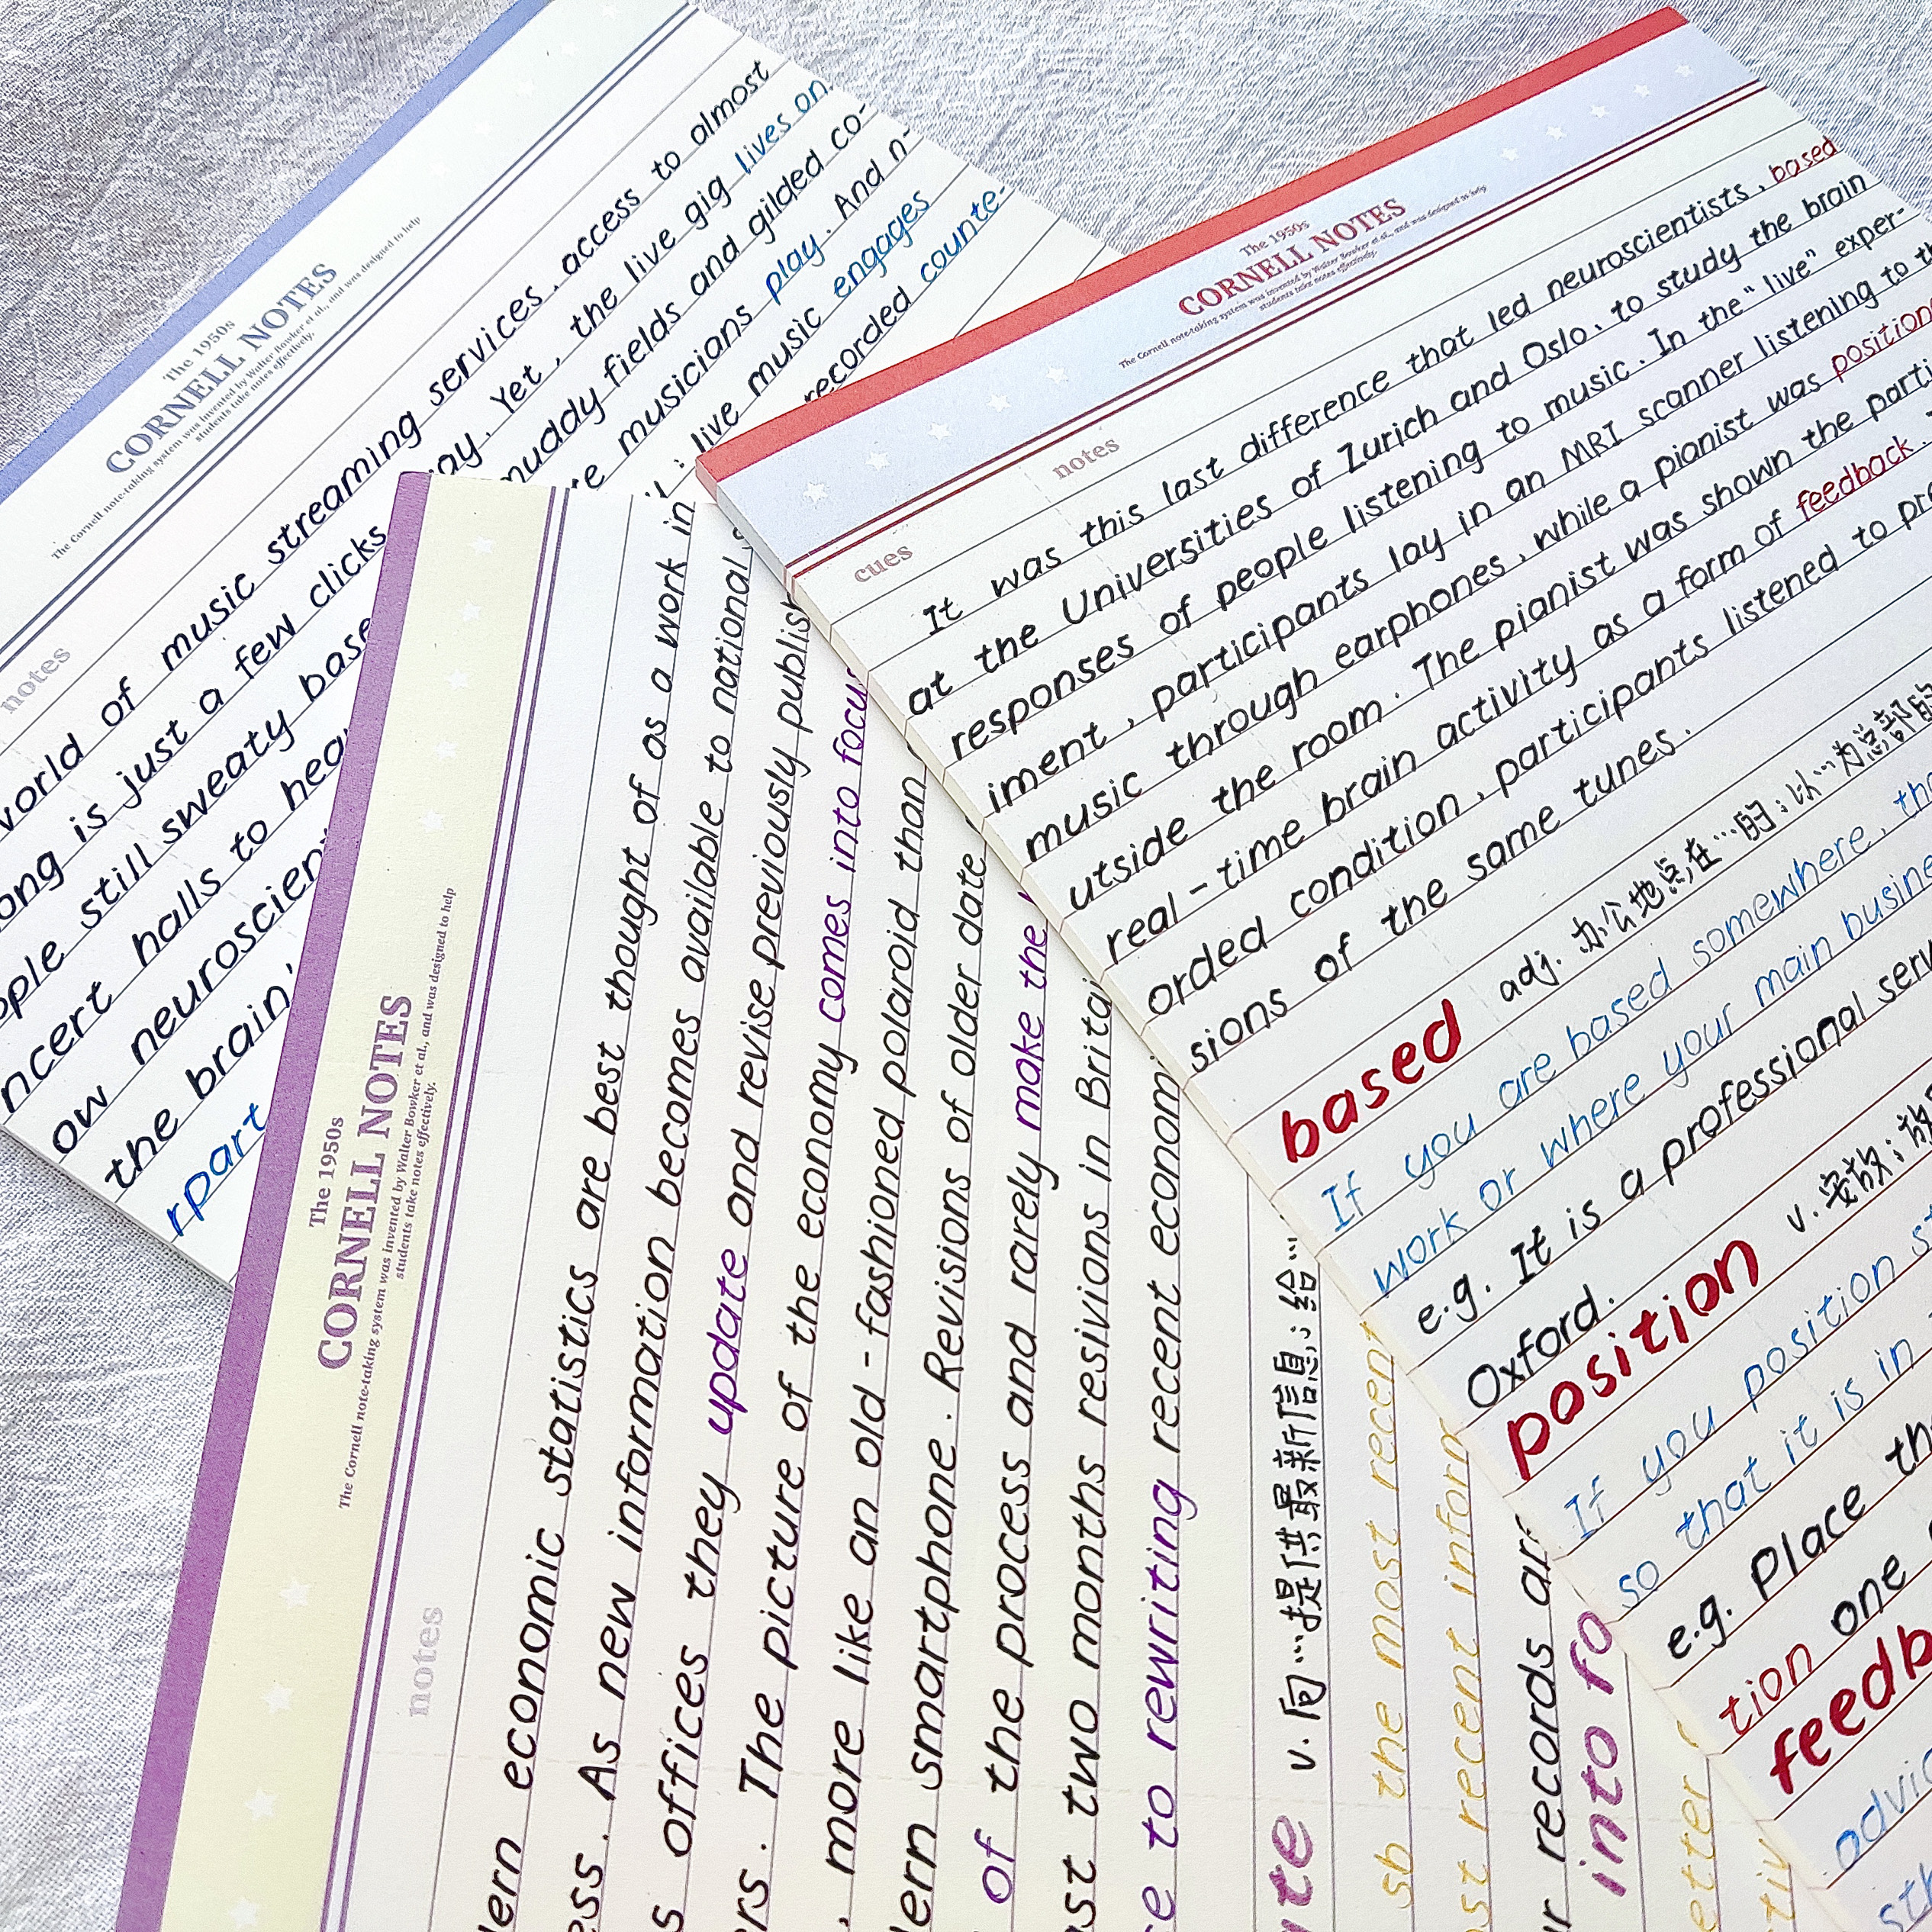 The 1950s
CORNELL NOTES
The Cornell note-taking system was invented by Walter Bowker et al., and was designed to help
students take notes effectively.
notes
world of music streaming services, access to almost
ong is just a few clicks away. Yet, the live gig lives on.
ople still sweaty base muddy fields and gilded co-
ncert halls to hea musicians play. And n-
ow neuroscien live music engages
the brain recorded counte-
rpart
The 1950s
CORNELL NOTES
The Cornell note-taking system was invented by Walter Bowker et al., and was designed to help
students take notes effectively.
notes
dern economic statistics are best thought of as a work in
ess. As new information becomes available to national
s offices they update and revise previously publish
ers. The picture of the economy comes into focus
, more like an old-fashioned polaroid than
dern smartphone. Revisions of older date
of the process and rarely make the
ast two months resivions in Britai
e to rewriting recent econom
te v. 向…提供最新信息; 给…
sb the most recent
st recent inform
r records are
into fo
etter
The 1950s
CORNELL NOTES
The Cornell note-taking system was invented by Walter Bowker et al., and was designed to help
students take notes effectively.
cues
notes
It was this last difference that led neuroscientists, based
at the Universities of Zurich and Oslo, to study the brain
responses of people listening to music. In the "live" exper-
iment, participants lay in an MRI scanner listening to th
music through earphones, while a pianist was position
utside the room. The pianist was shown the parti
real-time brain activity as a form of feedback.
orded condition, participants listened to pre
sions of the same tunes.
based adj. 办公地点在…的; 以…为总部的
If you are based somewhere, tha
work or where your main busine
e.g. It is a professional serv
Oxford.
position v. 安放; 放
If you position s
so that it is in
e.g. Place th
tion one
feedb
advic